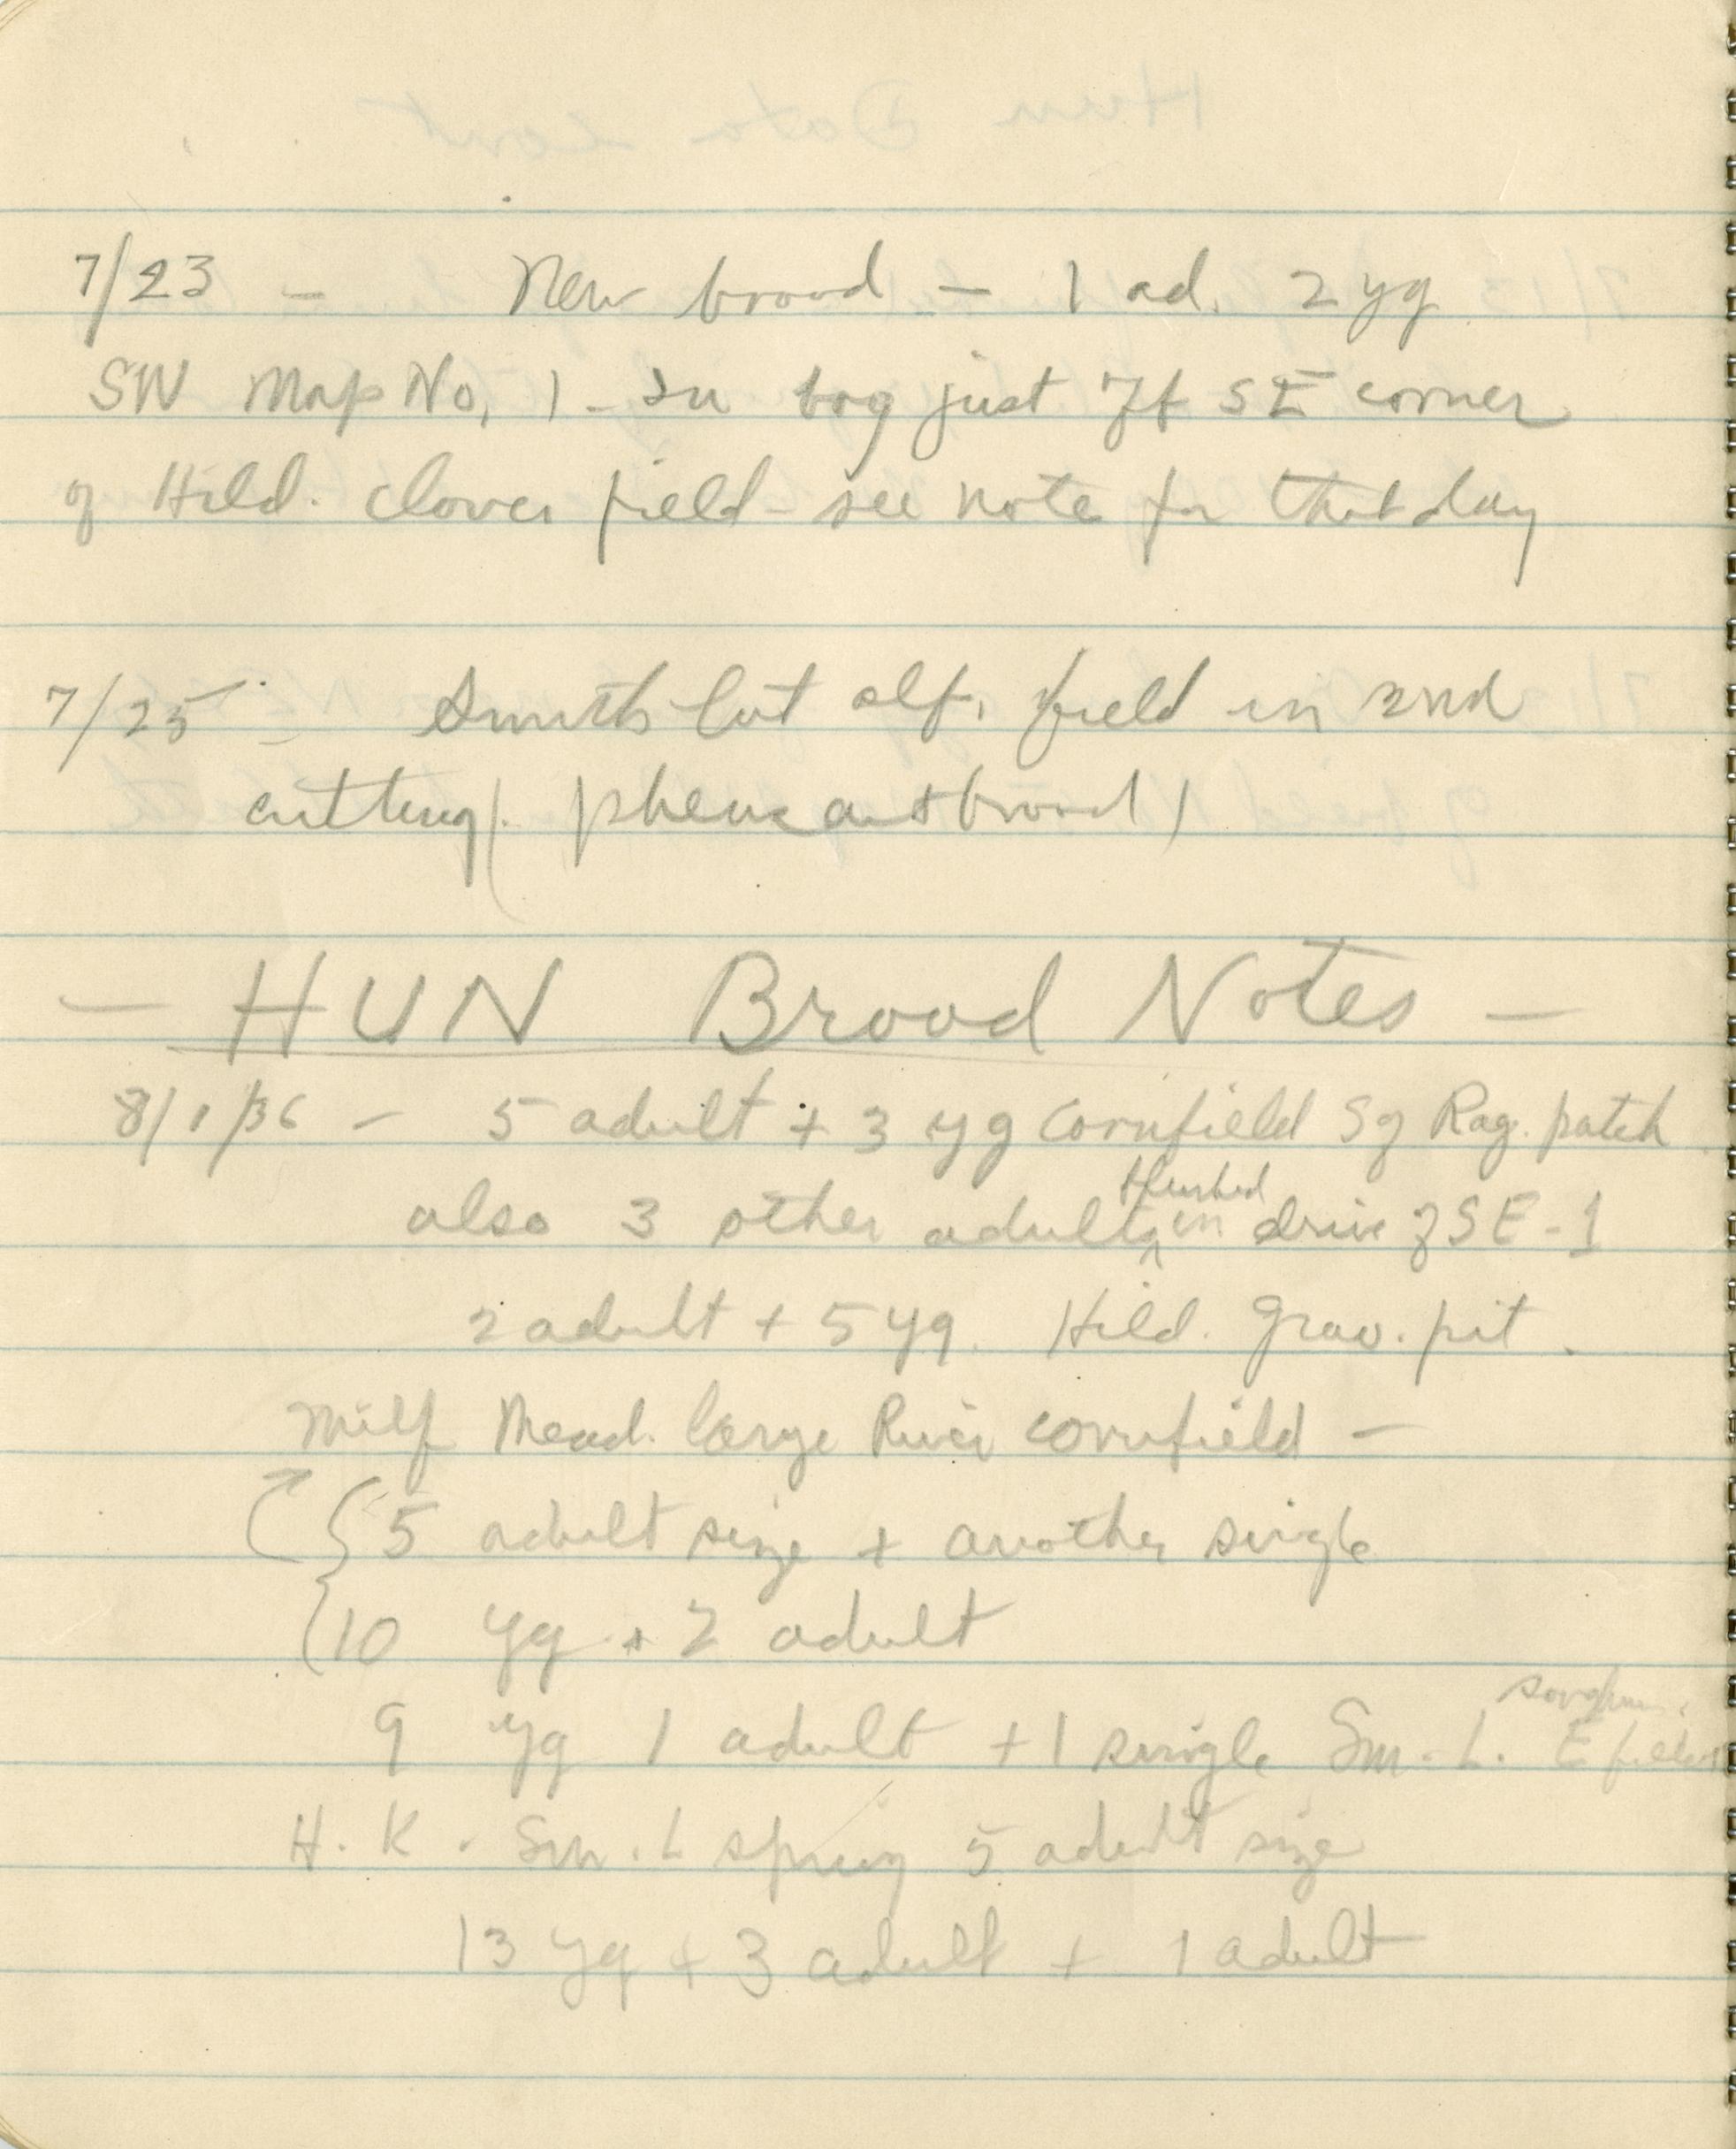 7/23 - New brood - 1 ad. 2 yg
SW Map No. 1 - In bog just off SE corner
of Hild. clover field - see note for that day
7/25 - Smith cut alf. field in 2nd
cutting (pheasant brood)
- HUN Brood Notes -
8/1/36 - 5 adult + 3 yg cornfield S of Rag. patch
also 3 other adults flushed in drive of SE-1
2 adult + 5 yg. Hild. Grav. pit.
Milf Mead. large River cornfield -
5 adult size + another single
10 yg + 2 adult
9 yg 1 adult + 1 single Sm. L. sorghum E field
H. K. Sm. L spring 5 adult size
13 yg + 3 adult + 1 adult